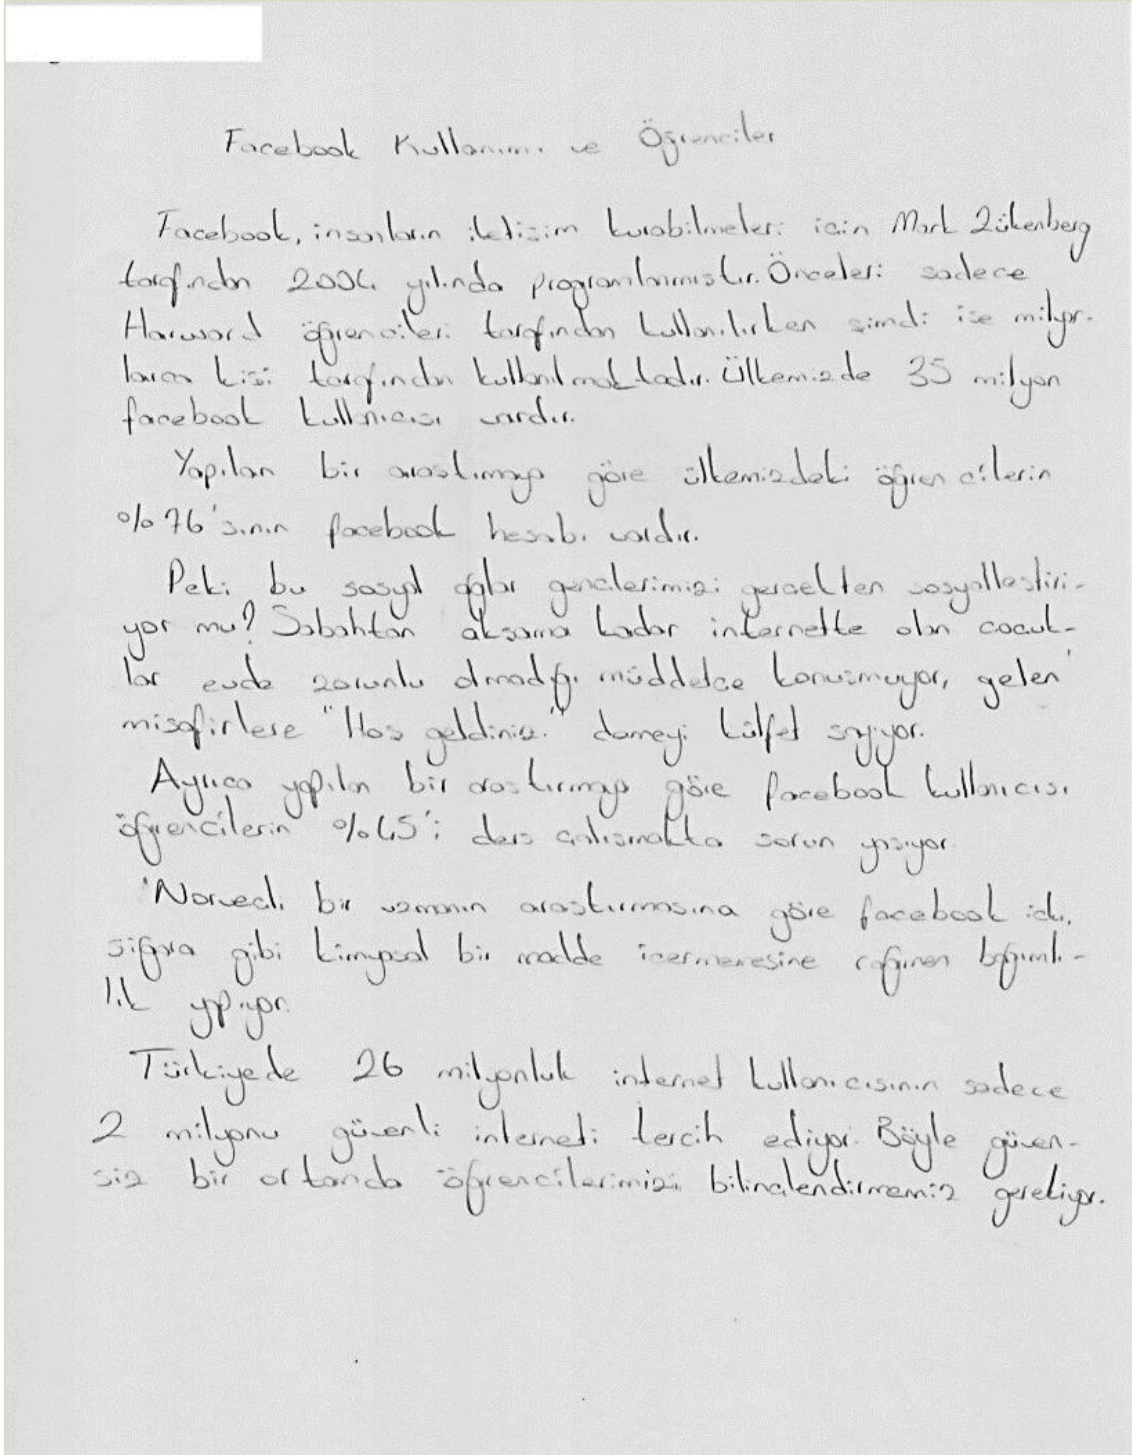 Facebook Kullanımı ve Öğrenciler
Facebook, insanların iletişim kurabilmeleri için Mark Zükenberg
tarafından 2004 yılında programlanmıştır. Önceleri sadece
Harward öğrencileri tarafından kullanılırken şimdi ise milyon-
larca kişi tarafından kullanılmaktadır. Ülkemizde 35 milyon
facebook kullanıcısı vardır.
Yapılan bir araştırmaya göre ülkemizdeki öğrencilerin
%76'sının facebook hesabı vardır.
Peki bu sosyal ağlar gençlerimizi gerçekten sosyalleştiri-
yor mu? Sabahtan akşama kadar internette olan çocuk-
lar evde zorunlu olmadığı müddetçe konuşmuyor, gelen
misafirlere "Hoş geldiniz." demeyi külfet sayıyor.
Ayrıca yapılan bir araştırmaya göre facebook kullanıcısı
öğrencilerin %45'i ders çalışmakta sorun yaşıyor.
Norveçli bir uzmanın araştırmasına göre facebook içki,
sigara gibi kimyasal bir madde içermemesine rağmen bağımlı-
lık yapıyor.
Türkiyede 26 milyonluk internet kullanıcısının sadece
2 milyonu güvenli interneti tercih ediyor. Böyle güven-
siz bir ortamda öğrencilerimizi bilinçlendirmemiz gerekiyor.